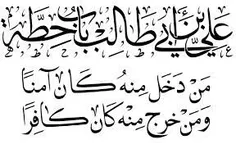 عَلِيُّ بْنُ أَبِي طَالِبٍ بَابُ حِطَّةٍ
مَنْ دَخَلَ مِنهُ كَانَ آمِنًا
وَمَنْ خَرَجَ مِنْهُ كَانَ كَافِرًا